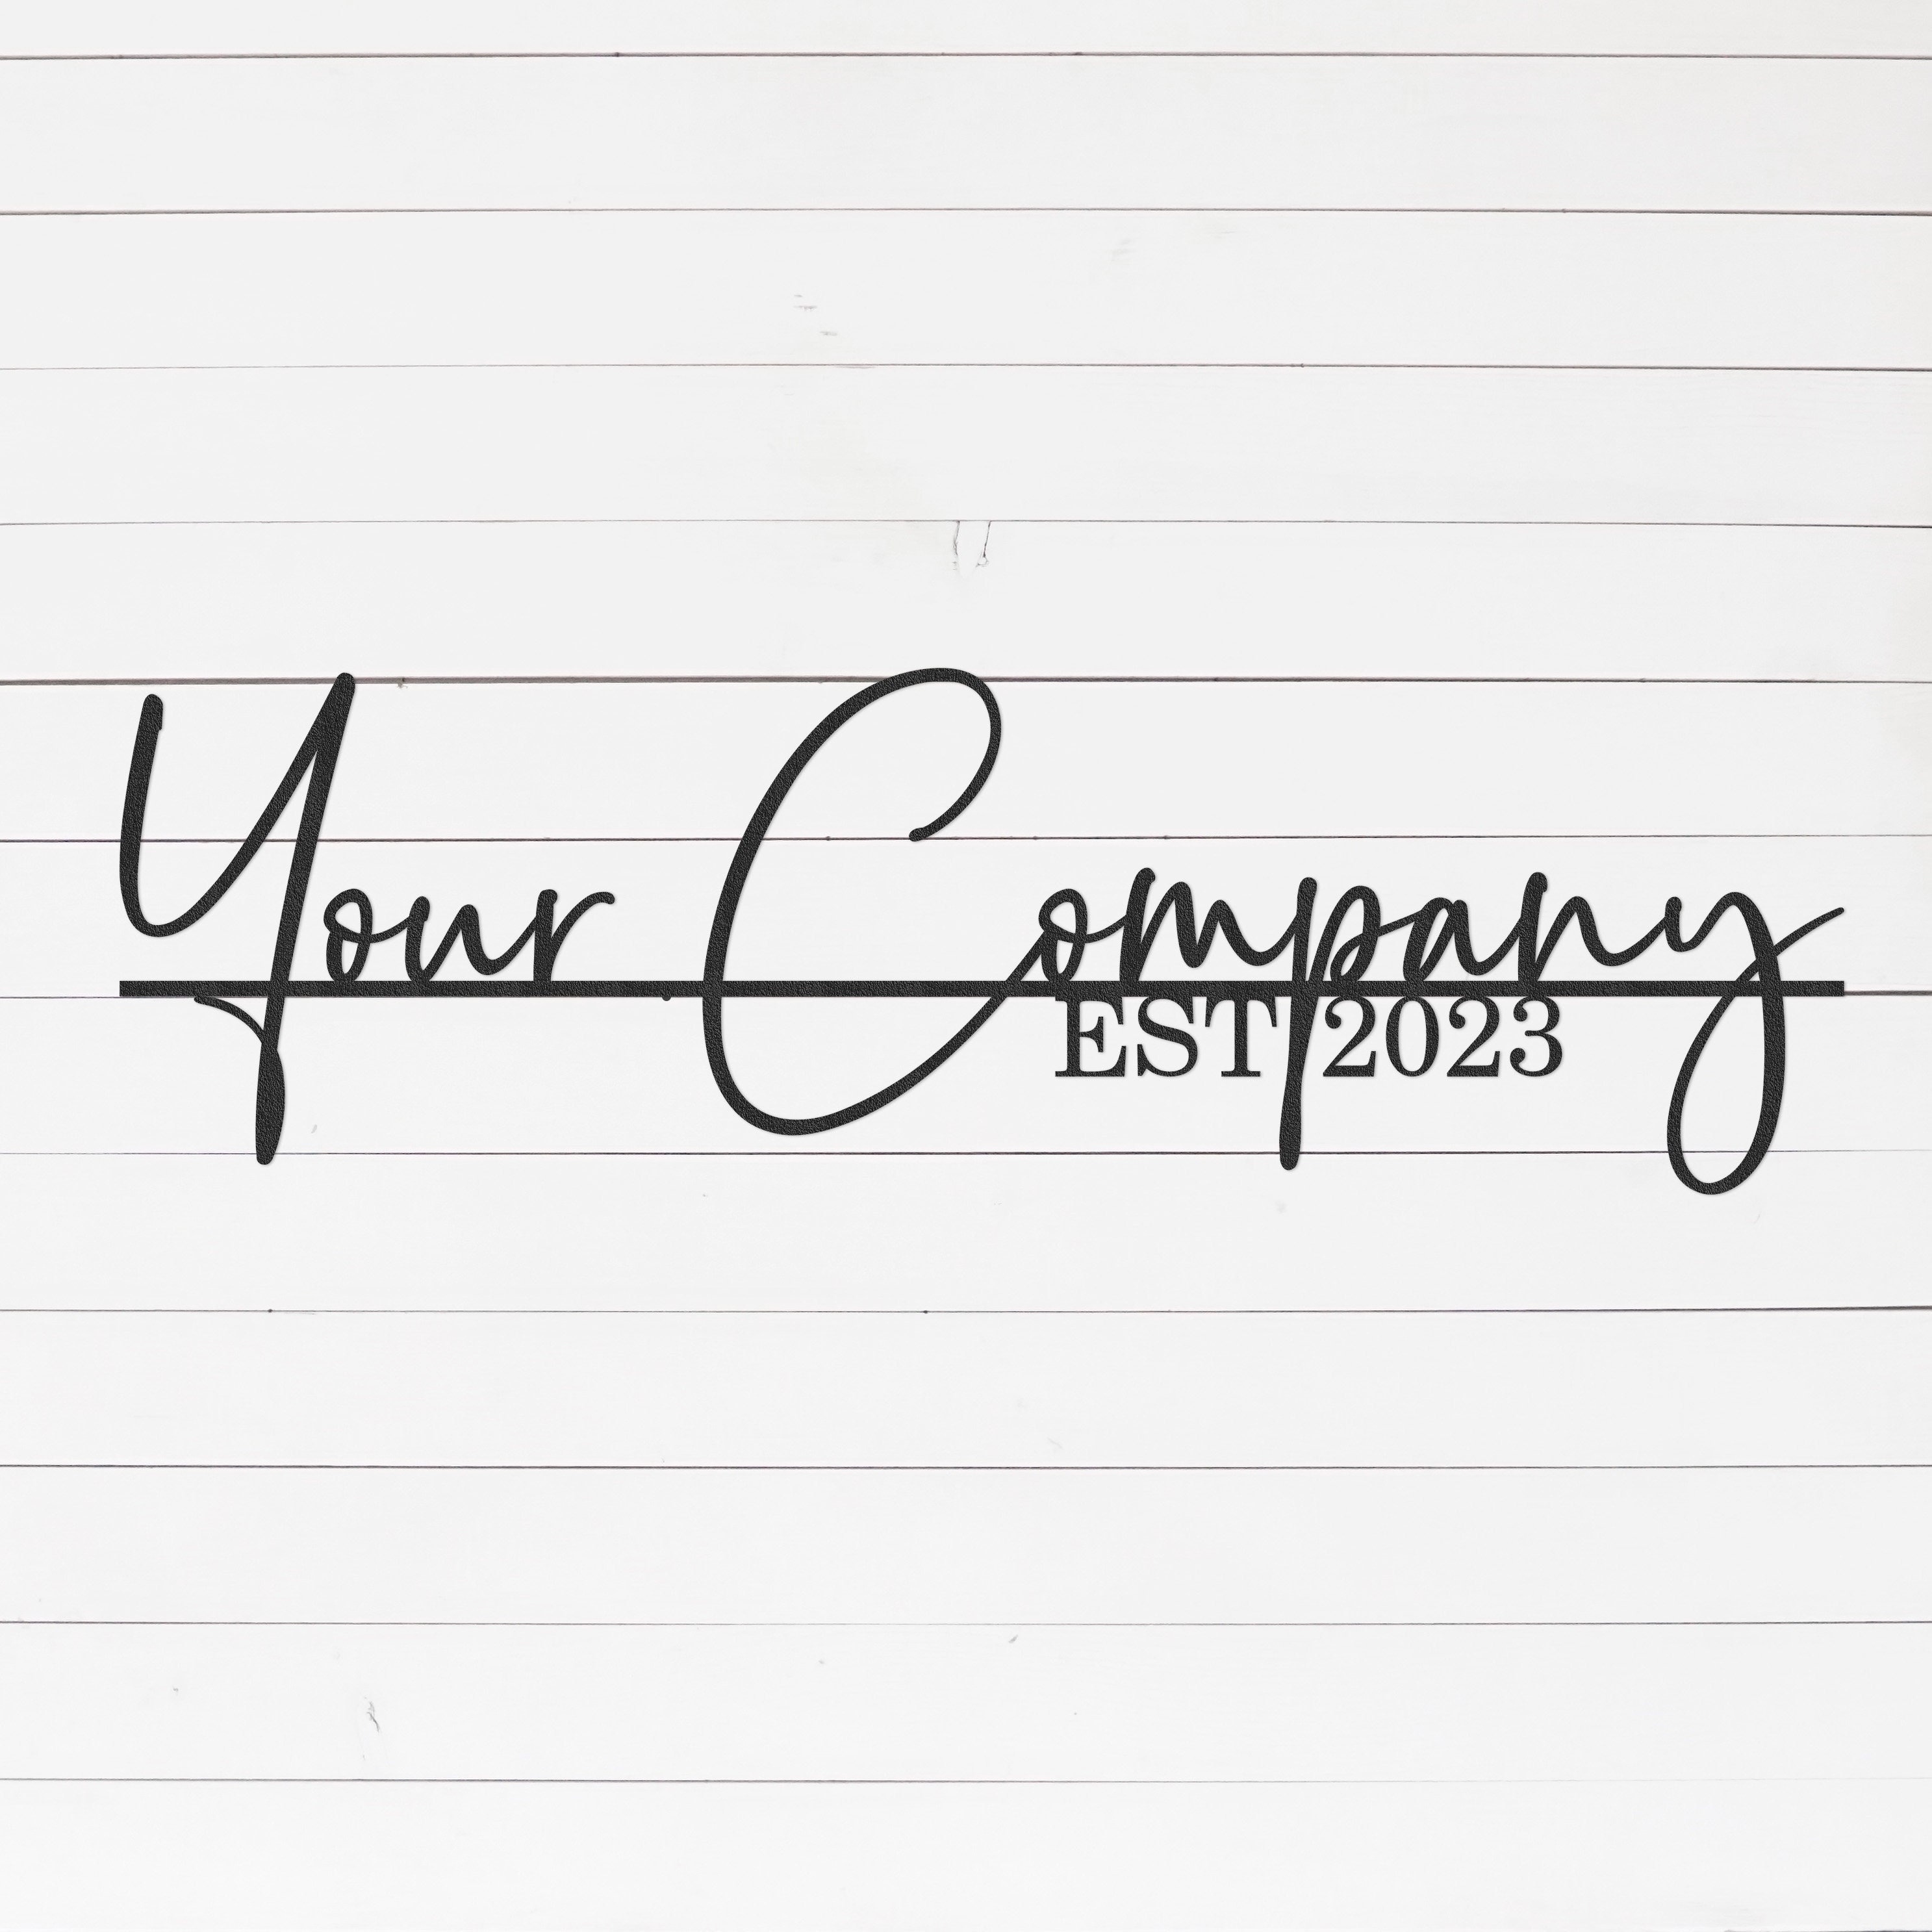 Your Company
EST 2023